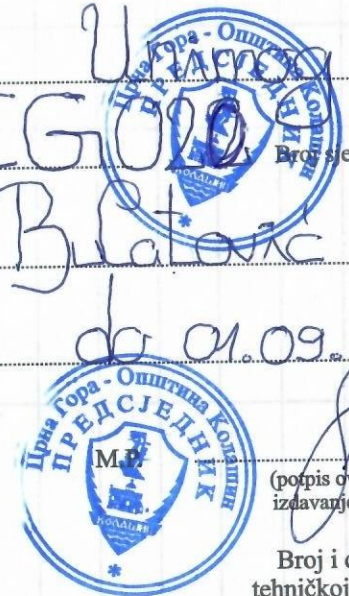 Unimog
Црна Гора - Општина Колашин
ПРЕДСЈЕДНИК
КОЛАШИН
Broj sje
Bulatović
do 01.09.
Црна Гора - Општина Колашин
ПРЕДСЈЕДНИК
M.P.
КОЛАШИН
(potpis ov
izdavanje
Broj i d
tehničkoj